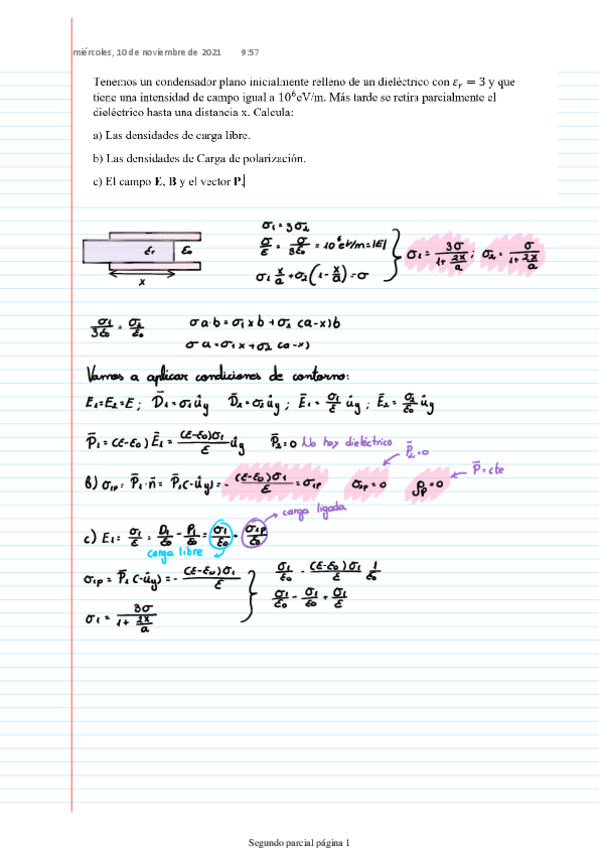 miércoles, 10 de noviembre de 2021 9:57
Tenemos un condensador plano inicialmente relleno de un dieléctrico con εᵣ = 3 y que
tiene una intensidad de campo igual a 10⁶eV/m. Más tarde se retira parcialmente el
dieléctrico hasta una distancia x. Calcula:
a) Las densidades de carga libre.
b) Las densidades de Carga de polarización.
c) El campo E, B y el vector P.
σ₁ = 3σ₂
σ/ε = σ/3ε₀ = 10⁶eV/m = |E|
σ₁ x/a + σ₂(1 - x/a) = σ
σ₁ = 3σ/(1 + 2x/a) ; σ₂ = σ/(1 + 2x/a)
εᵣ ε₀
x
σ₁/3ε₀ = σ₂/ε₀ σ a·b = σ₁ x b + σ₂ (a-x)b
σ a = σ₁ x + σ₂ (a-x)
Vamos a aplicar condiciones de contorno:
E₁=E₂=E ; D̄₁ = σ₁ûy D̄₂ = σ₂ûy ; Ē₁ = σ₁/ε ûy ; Ē₂ = σ₂/ε₀ ûy
P̄₁ = (ε-ε₀) Ē₁ = (ε-ε₀)σ₁/ε ûy P̄₂ = 0 No hay dieléctrico
P̄₂ = 0
b) σ₁p = P̄₁·n̄ = P̄₁(-ûy) = - (ε-ε₀)σ₁/ε = σ₁p σ₂p = 0 ρp = 0 P̄ = cte
carga ligada
c) E₁ = σ₁/ε = D₁/ε₀ - P₁/ε₀ = σ₁/ε₀ + σ₁p/ε₀
carga libre
σ₁p = P̄₁(-ûy) = - (ε-ε₀)σ₁/ε
σ₁ = 3σ/(1 + 2x/a)
σ₁/ε₀ - (ε-ε₀)σ₁/ε 1/ε₀
σ₁/ε₀ - σ₁/ε₀ + σ₁/ε
Segundo parcial página 1